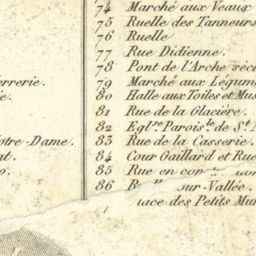 74 Marché aux Veaux
75 Ruelle des Tanneurs
76 Ruelle
77 Rue Didienne.
78 Pont de l'Arche
errerie. 79 Marché aux Légum
ie. 80 Halle aux Toiles et
81 Rue de la Glacière.
82 Egl.se Parois.le de S.t
otre-Dame. 83 Rue de la Casserie.
ut. 84 Cour Gaillard et Rue
o. 85 Rue en
86 sur-Vallée.
ace des Petits Mu